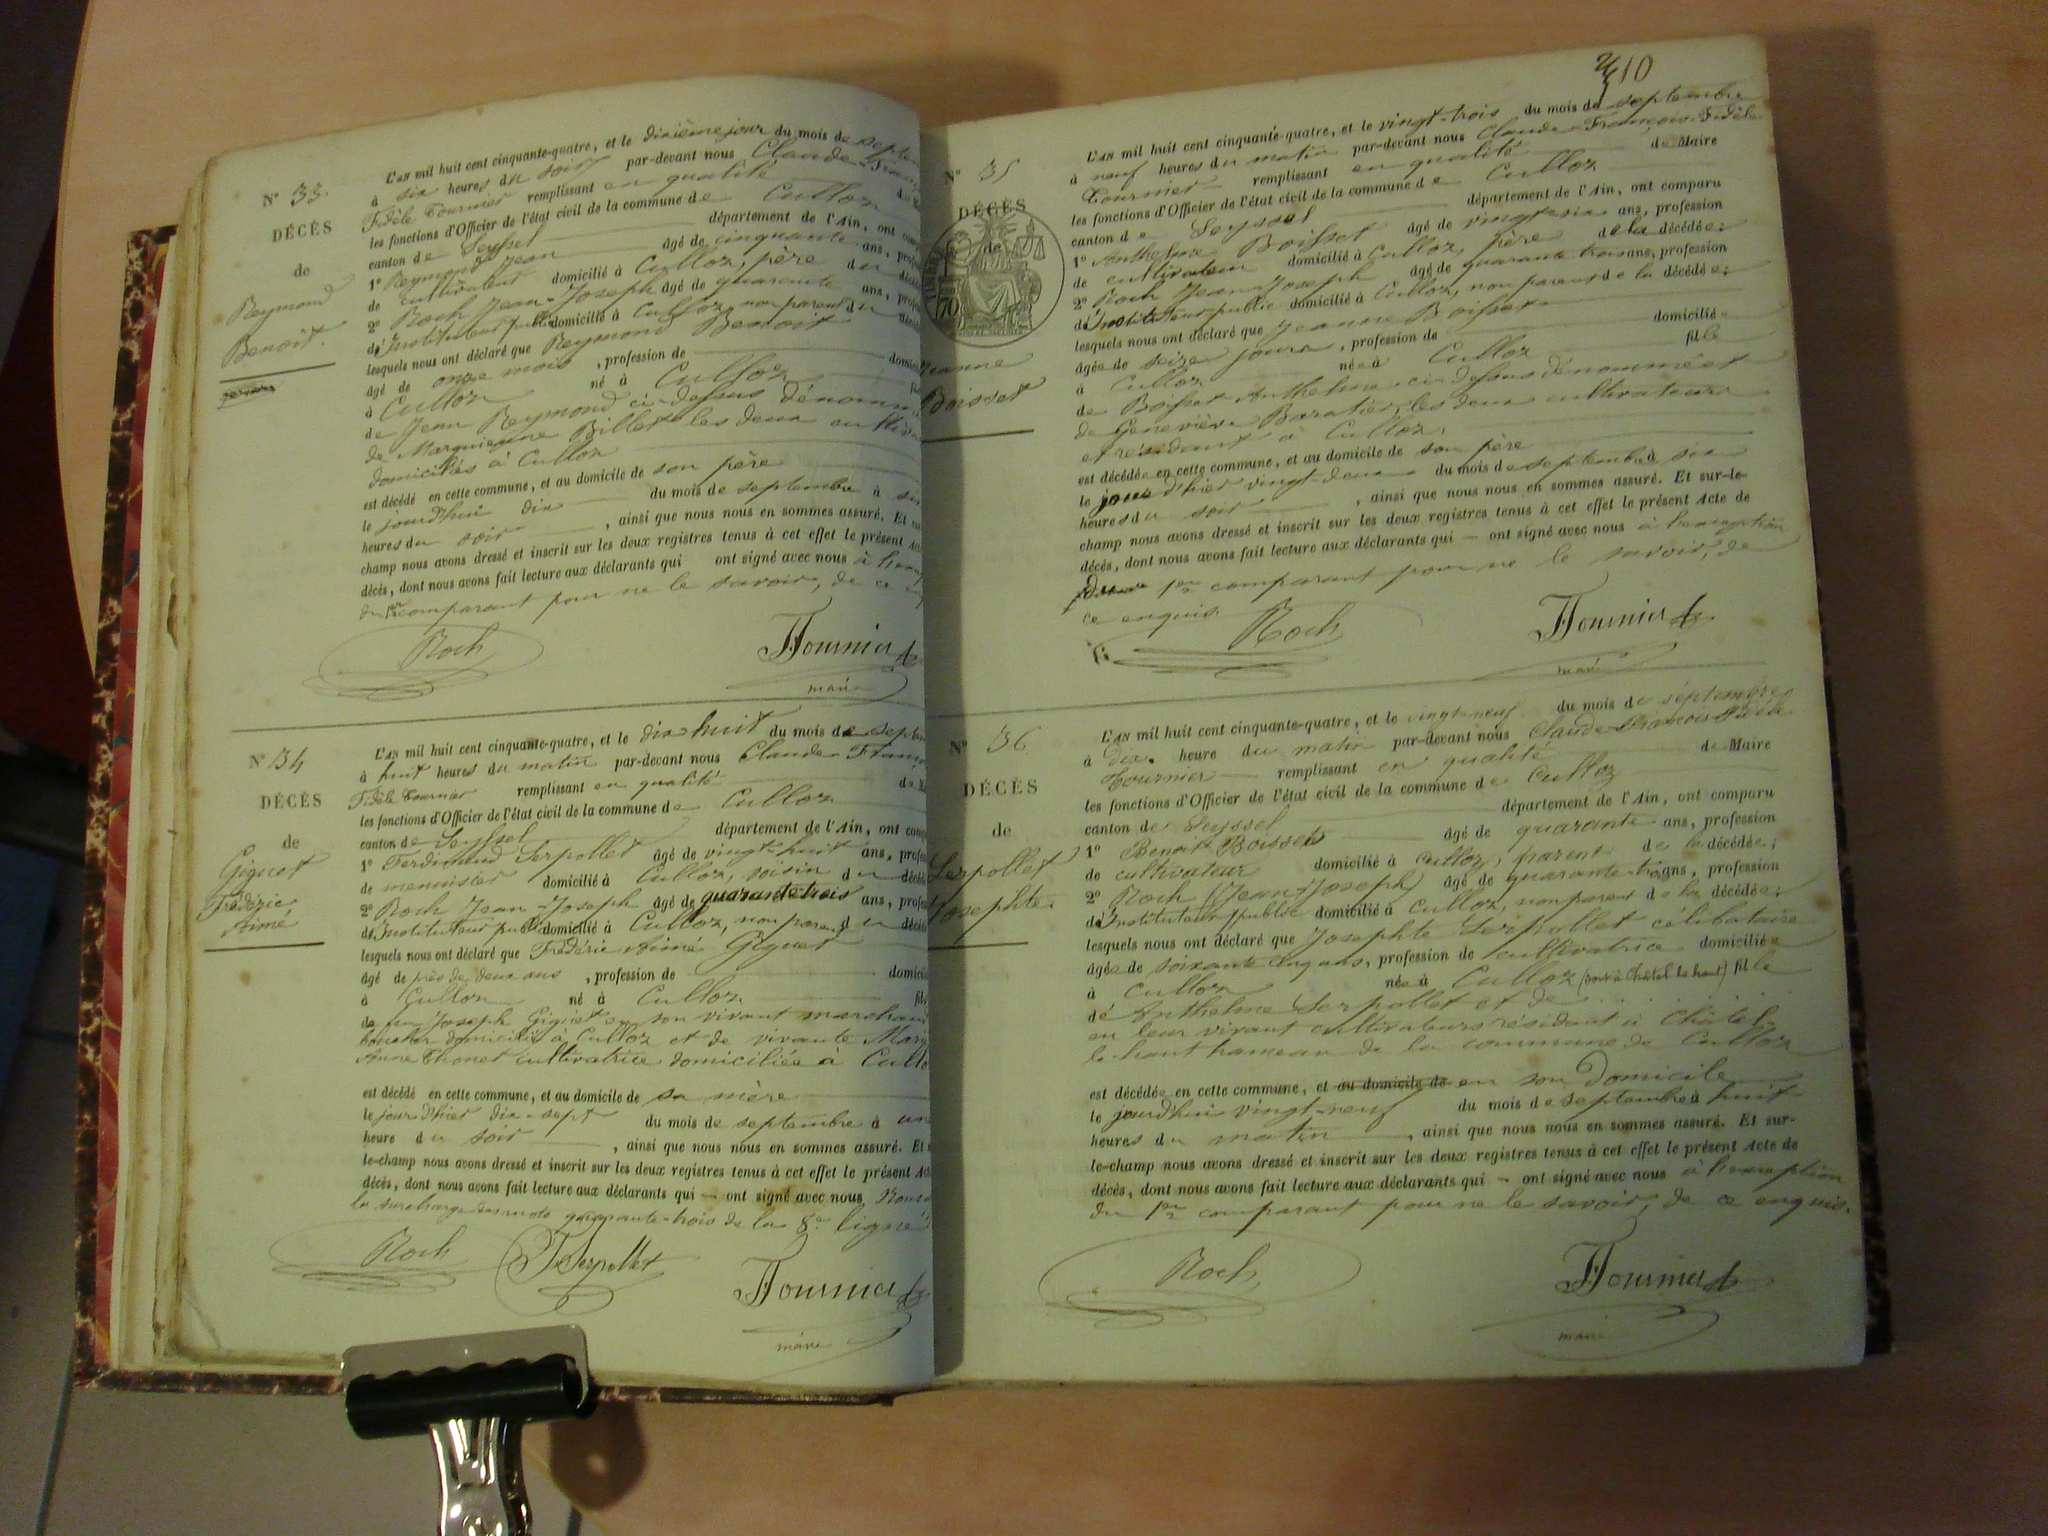 N° 33.
DÉCÈS
de
Reymond
Benoit.
L'AN mil huit cent cinquante-quatre, et le dixième jour du mois de
à six heures du soir par-devant nous Claude
Fidèle Tournier remplissant en qualité
les fonctions d'Officier de l'état civil de la commune de Culloz
canton de Seyssel département de l'Ain, ont
1° Reymond Jean âgé de cinquante ans,
de cultivateur domicilié à Culloz, père du
2° Roch Jean-Joseph âgé de quarante ans,
d'Instituteur public domicilié à Culloz, non parent du
lesquels nous ont déclaré que Reymond Benoit
âgé de onze mois, profession de
à Culloz né à Culloz
de Jean Reymond ci-dessus
de Billet les deux
domiciliés à Culloz
est décédé en cette commune, et au domicile de son père
le jourd'hui dix du mois de septembre à
heures du soir, ainsi que nous nous en sommes assuré. Et
champ nous avons dressé et inscrit sur les deux registres tenus à cet effet le présent
décès, dont nous avons fait lecture aux déclarants qui ont signé avec nous à
du 1er comparant pour ne le savoir, de ce
Roch Fournier
maire
N° 34
DÉCÈS
de
Giguet
Frédéric
Aimé
L'AN mil huit cent cinquante-quatre, et le dix huit du mois de
à huit heures du matin par-devant nous Claude
Fidèle Tournier remplissant en qualité
les fonctions d'Officier de l'état civil de la commune de Culloz
canton de Seyssel département de l'Ain, ont
1° Ferdinand Serpollet âgé de vingt-huit ans,
de menuisier domicilié à Culloz, voisin du
2° Roch Jean-Joseph âgé de quarante-trois ans,
d'Instituteur public domicilié à Culloz, non parent du
lesquels nous ont déclaré que Frédéric Aimé Giguet
âgé de près de deux ans, profession de
à Culloz né à Culloz
de feu Joseph Giguet en son vivant marchand
boucher domicilié à Culloz et de vivante
Anne Thonet cultivatrice domiciliée à
est décédé en cette commune, et au domicile de sa mère
le jour d'hier dix-sept du mois de septembre à une
heure du soir, ainsi que nous nous en sommes assuré. Et
le-champ nous avons dressé et inscrit sur les deux registres tenus à cet effet le présent
décès, dont nous avons fait lecture aux déclarants qui — ont signé avec nous
la surcharge des mots quarante-trois de la 8e ligne
Roch FSerpollet Fournier
maire
10
N° 35
DÉCÈS
de
Jeanne
Boisset
L'AN mil huit cent cinquante-quatre, et le vingt-trois du mois de septembre
à neuf heures du matin par-devant nous Claude-François-Fidèle
Tournier remplissant en qualité de Maire
les fonctions d'Officier de l'état civil de la commune de Culloz
canton de Seyssel département de l'Ain, ont comparu
1° Anthelme Boisset âgé de vingt-six ans, profession
de cultivateur domicilié à Culloz, père de la décédée;
2° Roch Jean-Joseph âgé de quarante-trois ans, profession
d'Instituteur public domicilié à Culloz, non parent de la décédée;
lesquels nous ont déclaré que Jeanne Boisset
âgée de seize jours, profession de domiciliée
à Culloz née à Culloz fille
de Boisset Anthelme ci-dessus dénommé et
de Geneviève Baratier, les deux cultivateurs
et résidant à Culloz.
est décédée en cette commune, et au domicile de son père
le jour d'hier vingt-deux du mois de septembre à six
heures du soir, ainsi que nous nous en sommes assuré. Et sur-le-
champ nous avons dressé et inscrit sur les deux registres tenus à cet effet le présent Acte de
décès, dont nous avons fait lecture aux déclarants qui — ont signé avec nous à l'exception
1er comparant pour ne le savoir, de
ce enquis.
Roch Fournier
maire
N° 36
DÉCÈS
de
Serpollet
Josephte
L'AN mil huit cent cinquante-quatre, et le vingt-neuf du mois de septembre
à dix heure du matin par-devant nous Claude François Fidèle
Tournier remplissant en qualité de Maire
les fonctions d'Officier de l'état civil de la commune de Culloz
canton de Seyssel département de l'Ain, ont comparu
1° Benoit Boisset âgé de quarante ans, profession
de cultivateur domicilié à Culloz, parent de la décédée;
2° Roch (Jean-Joseph) âgé de quarante-trois ans, profession
d'Instituteur public domicilié à Culloz, non parent de la décédée;
lesquels nous ont déclaré que Josephte Serpollet célibataire
âgée de soixante cinq ans, profession de cultivatrice domiciliée
à Culloz née à Culloz fille
de Anthelme Serpollet et de . . . . .
en leur vivant cultivateurs résidant à Châtel-
le-haut hameau de la commune de Culloz
est décédée en cette commune, et au domicile de en son domicile
le jourd'hui vingt-neuf du mois de septembre à huit
heures du matin, ainsi que nous nous en sommes assuré. Et sur-
le-champ nous avons dressé et inscrit sur les deux registres tenus à cet effet le présent Acte de
décès, dont nous avons fait lecture aux déclarants qui — ont signé avec nous à l'exception
du 1er comparant pour ne le savoir, de ce enquis.
Roch Fournier
maire